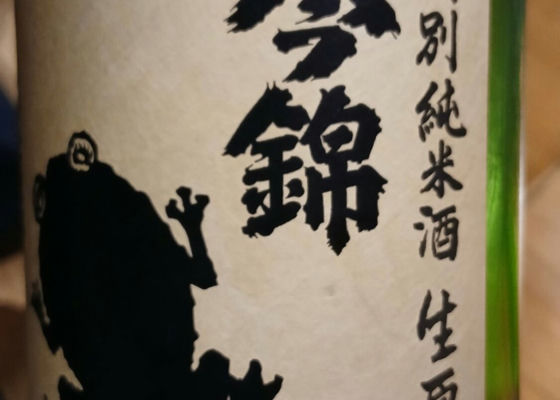 今錦
別純米酒 生